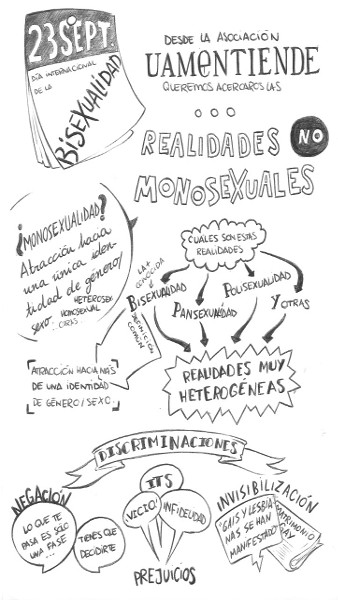 23 SEPT.
DÍA INTERNACIONAL
DE LA
BISEXUALIDAD
DESDE LA ASOCIACIÓN
UAMENTIENDE
QUEREMOS ACERCAROS LAS
...
REALIDADES NO
MONOSEXUALES
¿MONOSEXUALIDAD?
Atracción hacia
una única iden-
tidad de género/
sexo. HETEROSEX
HOMOSEXUAL
OTRAS
CUALES SON ESTAS
REALIDADES
LA +
CONOCIDA
BISEXUALIDAD
PANSEXUALIDAD
POLISEXUALIDAD
Y OTRAS
DEFINICIÓN
COMÚN
ATRACCIÓN HACIA MÁS
DE UNA IDENTIDAD
DE GÉNERO/SEXO.
REALIDADES MUY
HETEROGÉNEAS
DISCRIMINACIONES
NEGACIÓN
LO QUE TE
PASA ES SOLO
UNA FASE
...
TIENES QUE
DECIDIRTE
ITS
¡VICIO!
INFIDELIDAD
PREJUICIOS
INVISIBILIZACIÓN
"GAIS Y LESBIA-
NAS SE HAN
MANIFESTADO"
MATRIMONIO
GAY